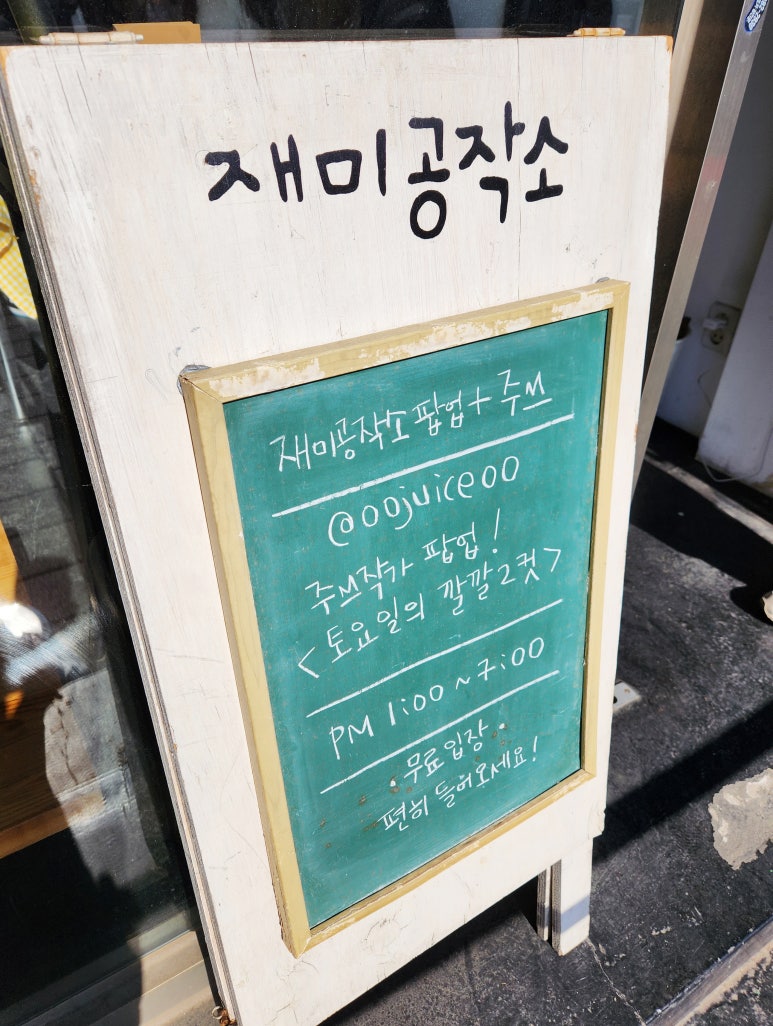 재미공작소
재미공작소 팝업 + 주쓰
@oojuiceoo
주쓰작가 팝업!
<토요일의 깔깔2컷>
PM 1:00 ~ 7:00
무료입장.
편히 들어오세요!